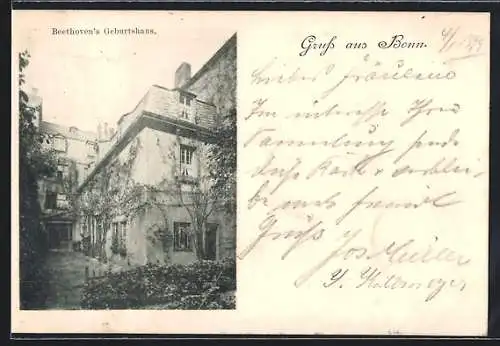 Beethoven's Geburtshaus.
Gruß aus Bonn.
Liebes Fräulein
Im Interesse Ihrer
Sammlung sende
diese Karte u. verblei-
be mit freundl.
Gruß
Jos Müller